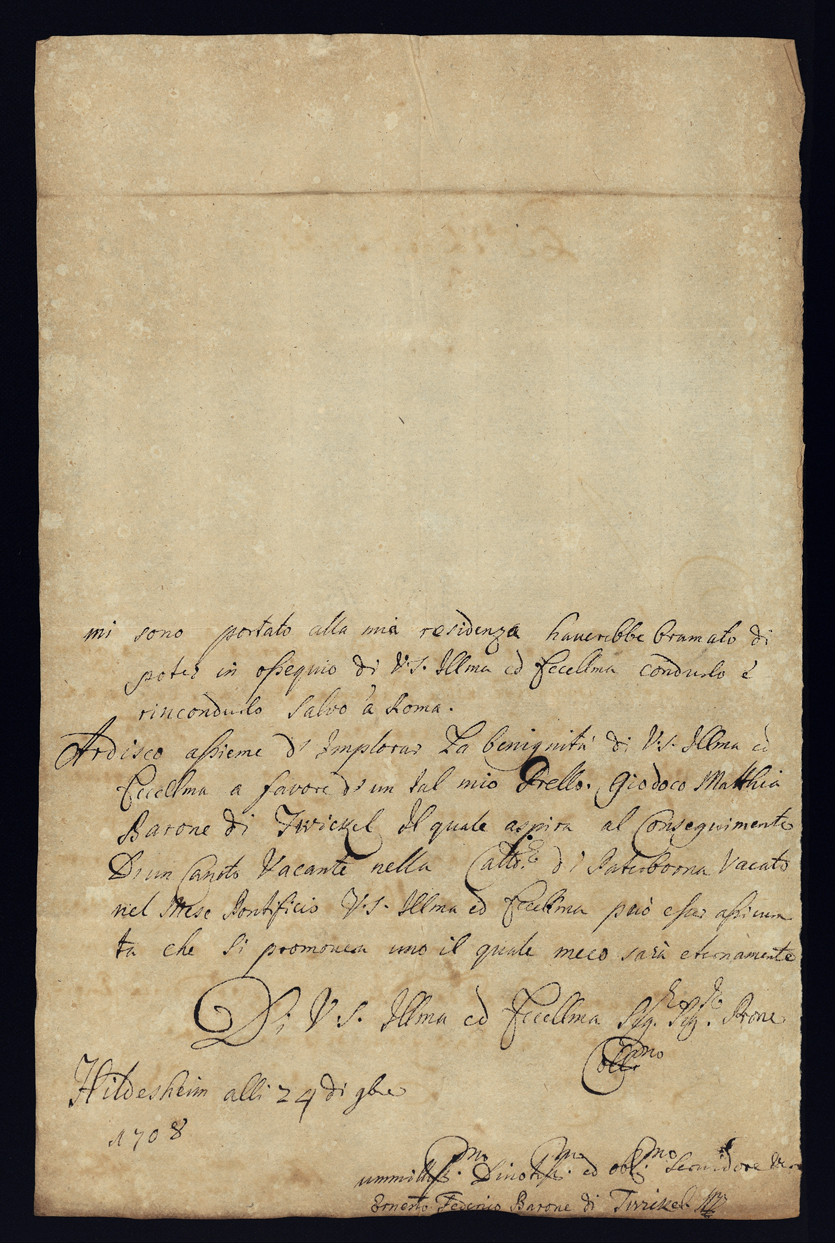 mi sono portato alla mia residenza haverebbe bramato di
poter in ossequio di V.S. Illma ed Eccellma condurlo è
rincondurlo salvo à Roma.
Ardisco assieme d'Implorar La benignità di V.S. Illma ed
Eccellma a favore d'un tal mio Frello. Giodoco Matthia
Barone di Twickel Il quale aspira al Conseguimento
D'un Canoto Vacante nella di Paterborna Vacato
nel Mese Pontificio V.S. Illma ed Eccellma può esser assicura
ta che si promoverà uno il quale meco sarà eternamente
Di V.S. Illma ed Eccellma Sig.re Sig.re Prone
Collmo
Hildesheim alli 24 di gbre
1708
ummilissmo. Divotissmo. ed oblmo. Servidore Vero
Ernesto Federico Barone di Twickel